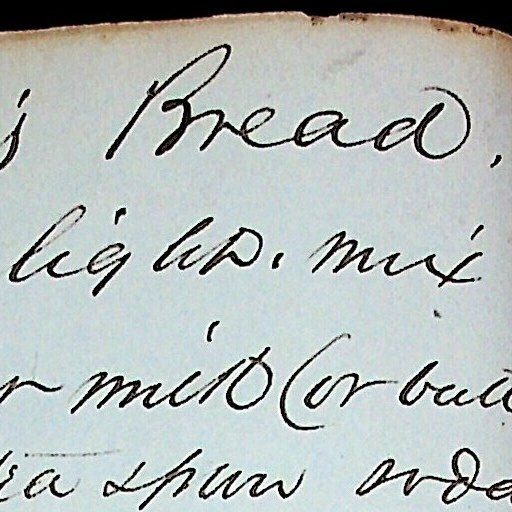 s Bread.
light. mix
r milk (or butt
tea spun soda